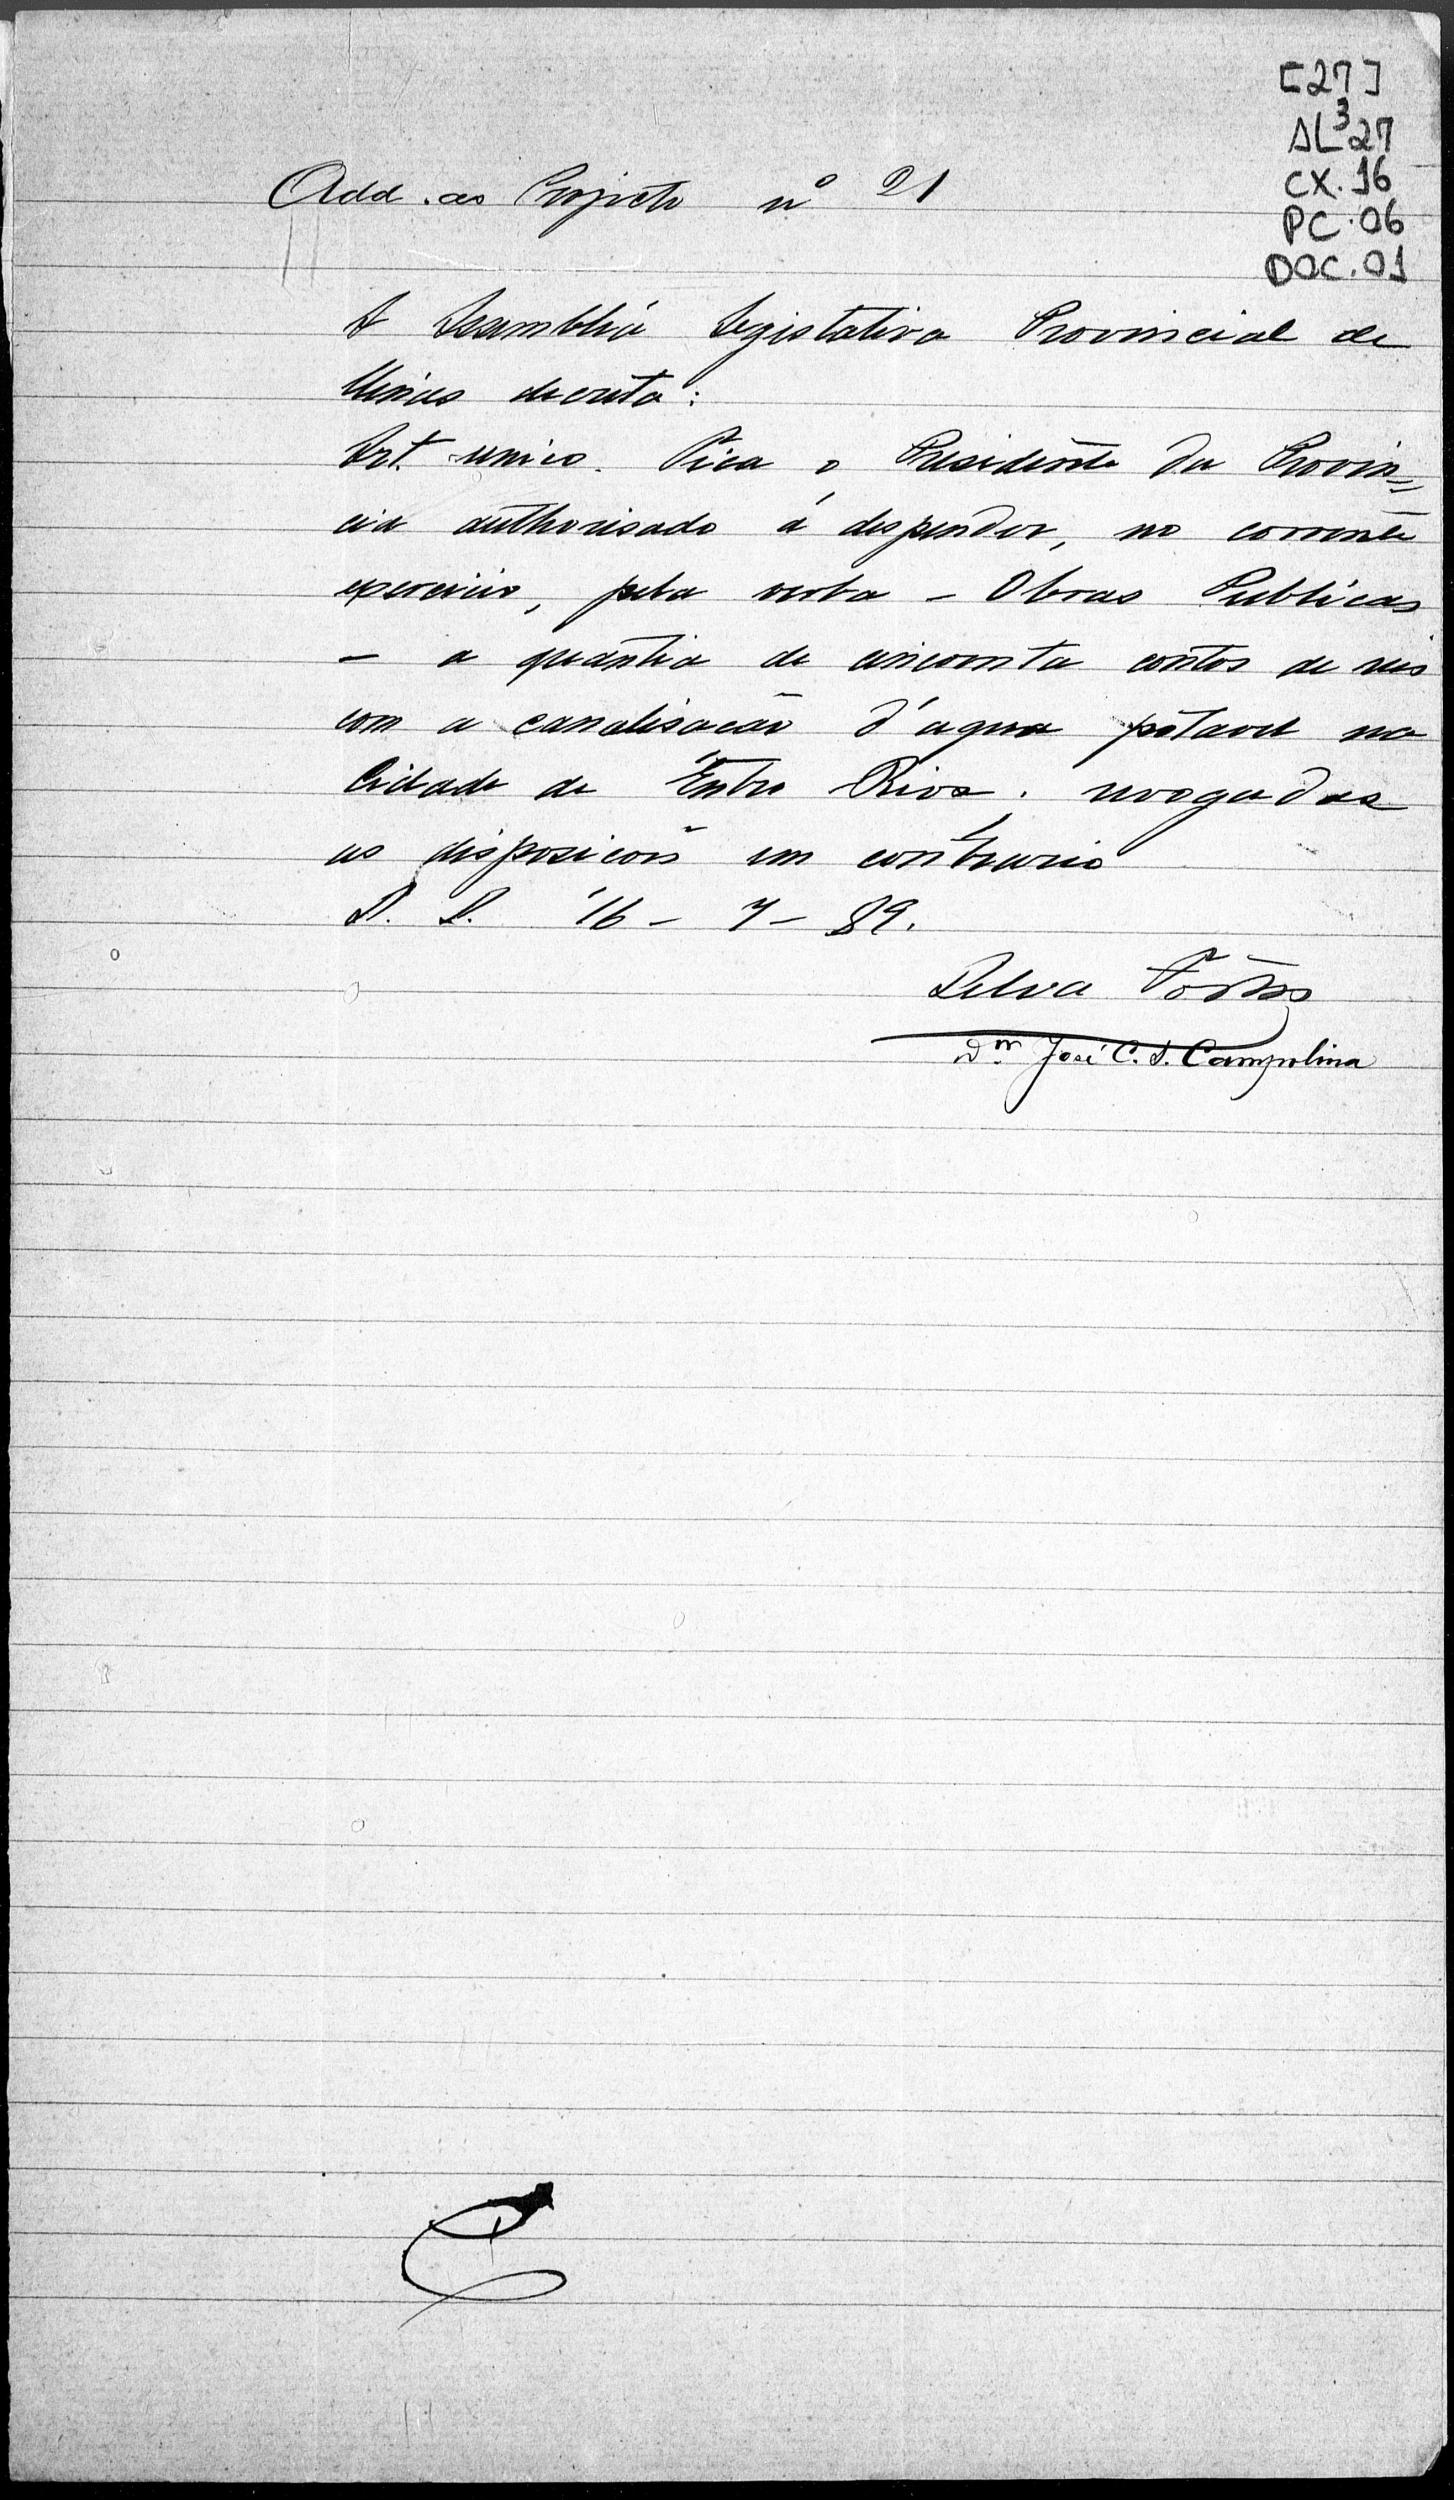 [27]
AL³27
CX.16
PC.06
DOC.01
Add. ao Projecto nº 21
A Assembléa Legislativa Provincial de
Minas decreta:
Art. unico. Fica o Presidente da Provin=
cia authorisado á despender, no corrente
exercicio, pela verba – Obras Publicas
– a quantia de cincoenta contos de reis
com a canalisacão d'agua potavel na
Cidade de Entre Rios; revogadas
as disposicões em contrario
S. S. 16 – 7 – 89.
Silva Fortes
Dor José C. S. Campolina